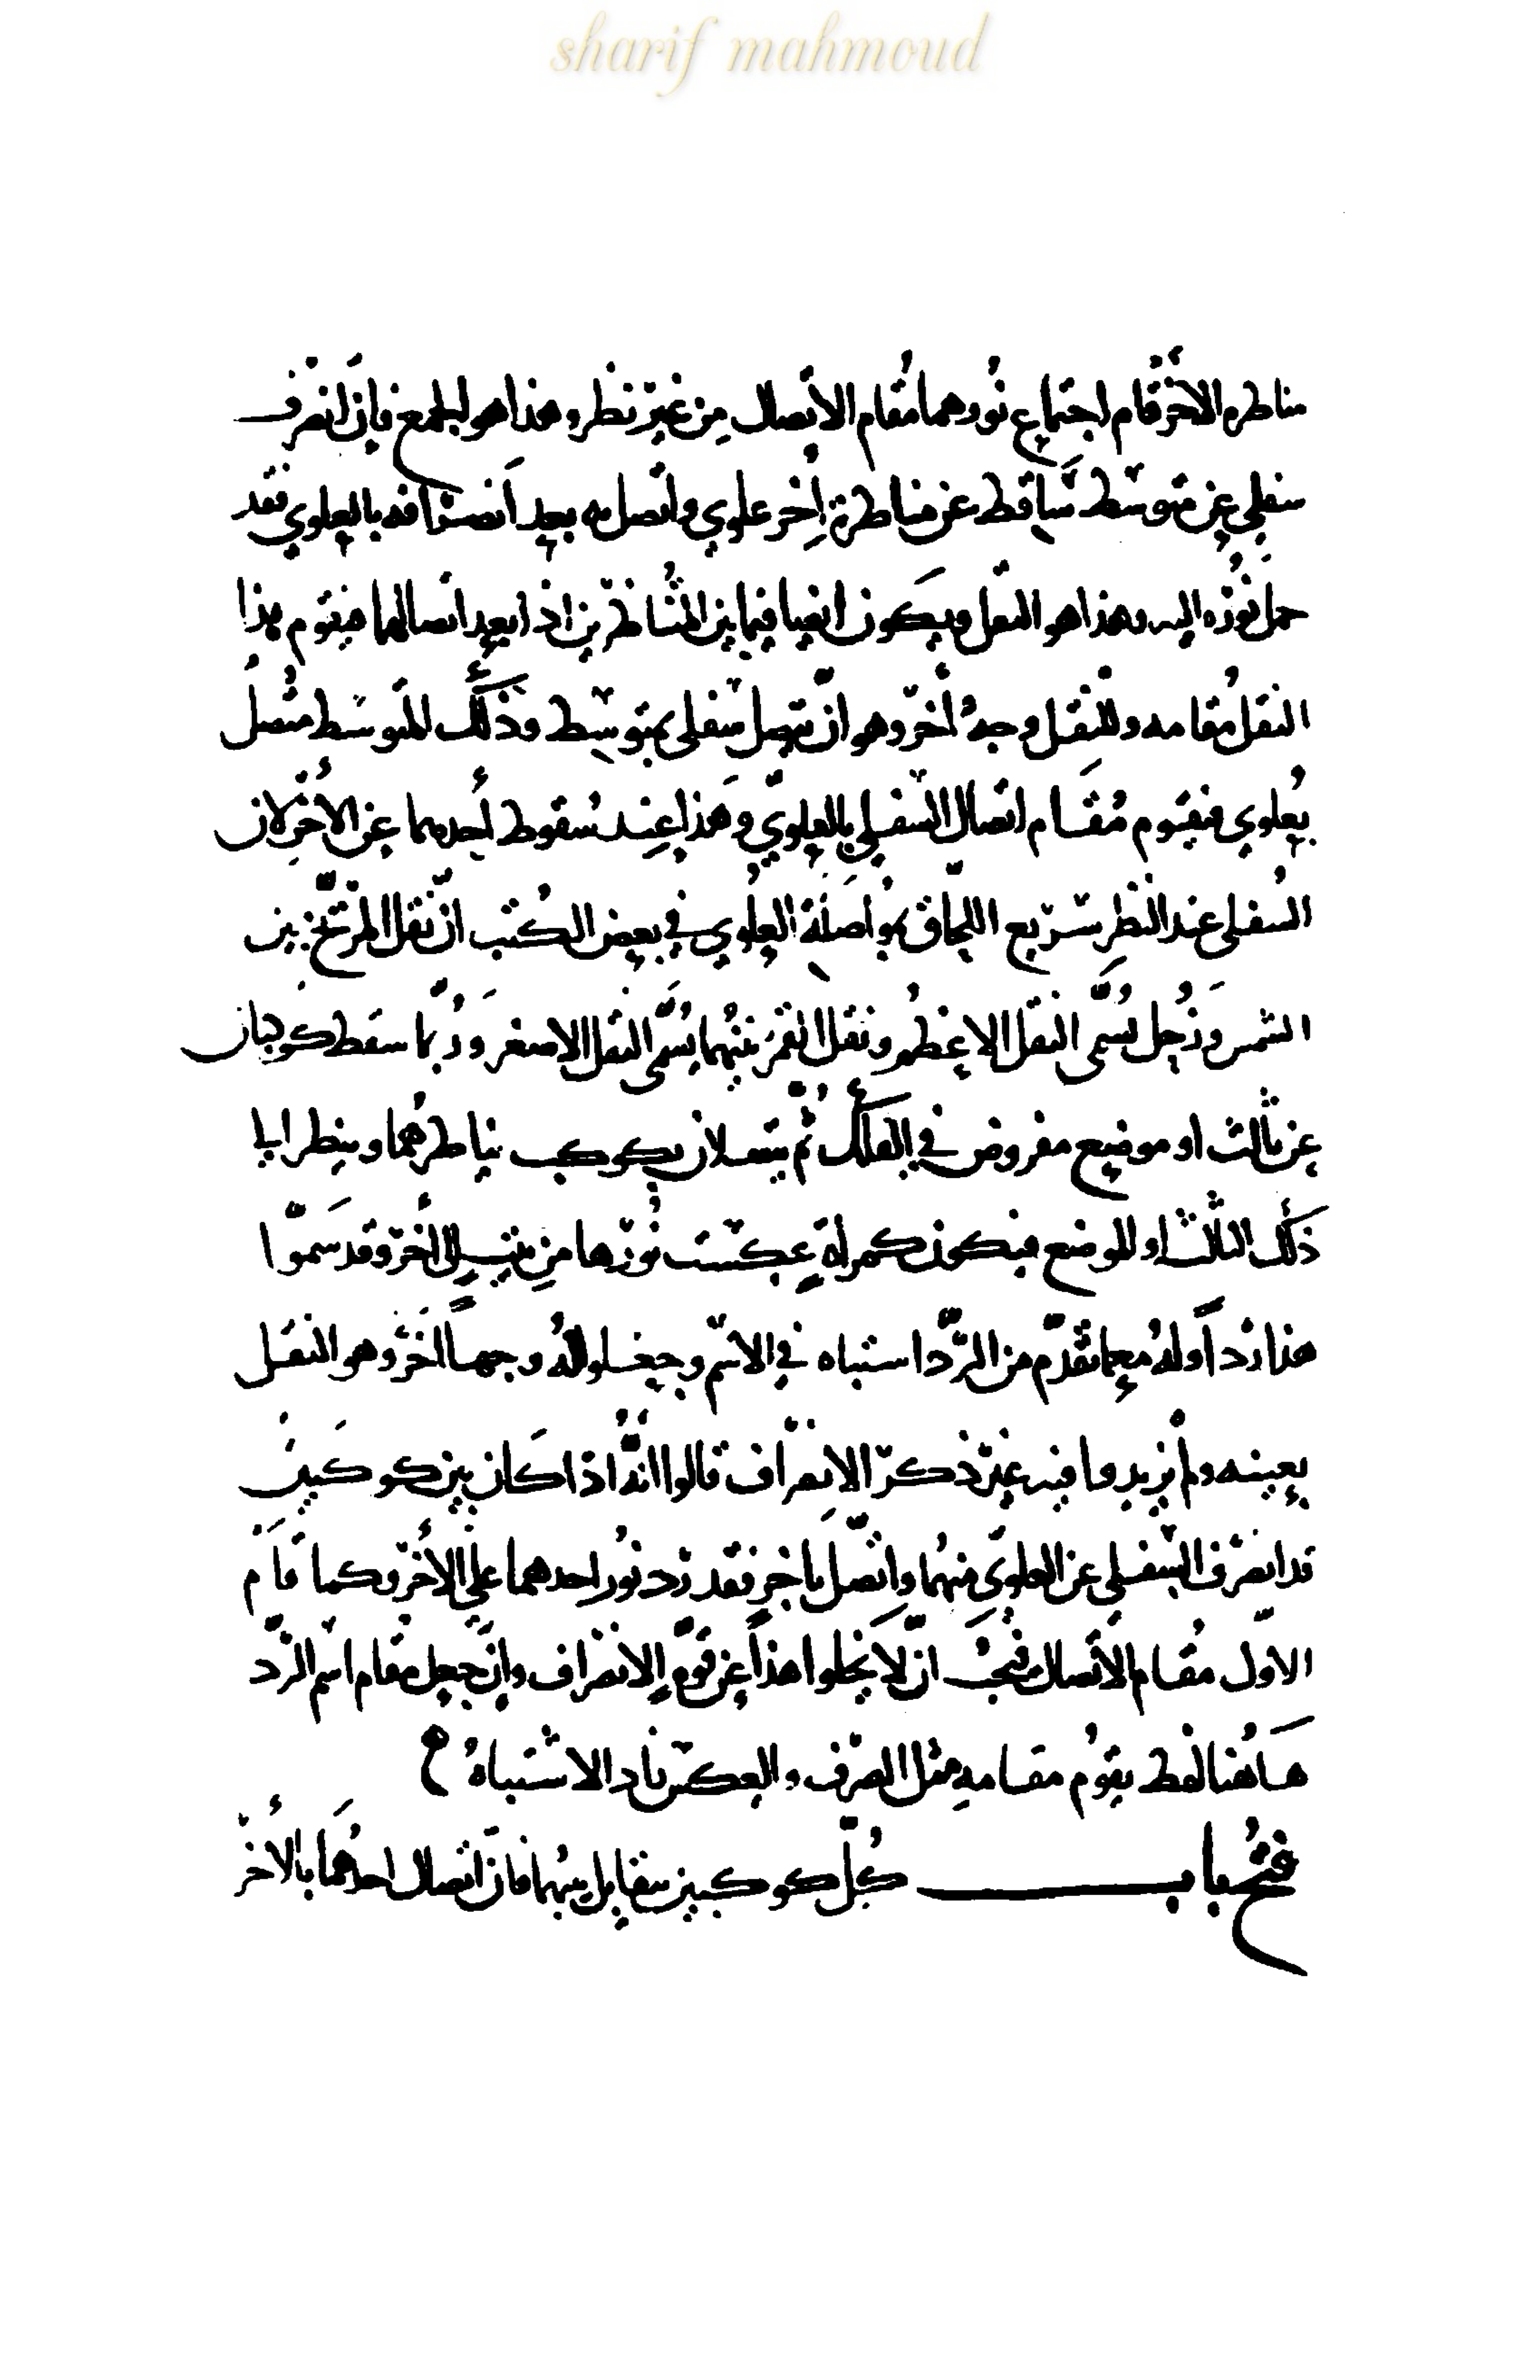 sharif mahmoud
مناظره الاخر قام اجتماع نورهما مقام الاتصال من غير نظر وهذا هو الجمع فان انصرف
سفلي عن متوسط ساقط عن مناظرة اخر علوي واتصل به بعد انصرافه بالعلوي فقد
حمل نوره اليه وهذا هو النقل ويكون ايضا فيما بين المتناظرين اذا بعد اتصالهما فيقوم هذا
النقل مقامه وللنقل وجه أخر وهو ان يتصل سفلي بمتوسط وذلك المتوسط متصل
بعلوي فيقوم مقام اتصال السفلي بالعلوي وهذا عند سقوط أحدهما عن الأخر لان
السفلي عند النظر سريع اللحاق بمواصلة العلوي في بعض الكتب ان نقل المريخ بين
الشمس وزحل يسمى النقل الاعظم ونقل القمر بينهما يسمى النقل الاصغر وربما سقط كوكبان
عن ثالث او موضع مفروض في الفلك ثم يتصلان بكوكب يناظرهما وينظر الى
ذلك الثالث او الموضع فيكون كمرآة عكست نورها من بيت الى أخر وقد سموا
هذا ردا وله مع ما تقدم من الرد اشتباه في الاسم وجعلوا له وجها اخر وهو النقل
بعينه ولم يزيدوا فيه غير ذكر الانصراف قالوا انه اذا كان بين كوكبين
قد انصرف السفلي عن العلوي منهما واتصل باخر فقد رد نور احدهما على الأخر وكما قام
الاول مقام الاتصال فيجب ان لا يخلوا هذا عن قوة الانصراف وان جعل مقام اسم الرد
هاهنا لفظ يقوم مقامه مثل الصرف والعكس زاد الاشتباه
فتح باب كل كوكبين يتقابل بيتهما فان اتصال احدهما بالأخر